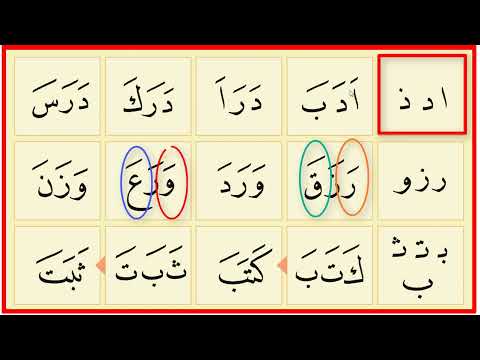 ا د ذ اَدَبَ دَرَاَ دَرَكَ دَرَسَ
ر ز و رَزَقَ وَرَدَ وَرَعَ وَزَنَ
ب ت ث ب كَتَبَ كَتَبَ ثَبَتَ ثَبَتَ